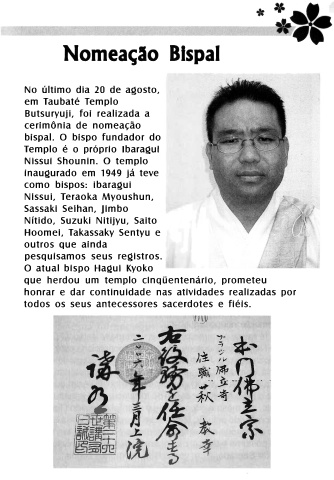 Nomeação Bispal
No último dia 20 de agosto,
em Taubaté Templo
Butsuryuji, foi realizada a
cerimônia de nomeação
bispal. O bispo fundador do
Templo é o próprio Ibaragui
Nissui Shounin. O templo
inaugurado em 1949 já teve
como bispos: ibaragui
Nissui, Teraoka Myoushun,
Sassaki Seihan, Jimbo
Nítido, Suzuki Nitijyu, Saito
Hoomei, Takassaky Sentyu e
outros que ainda
pesquisamos seus registros.
O atual bispo Hagui Kyoko
que herdou um templo cinqüentenário, prometeu
honrar e dar continuidade nas atividades realizadas por
todos os seus antecessores sacerdotes e fiéis.
本門佛立宗
ブラジル佛立寺
住職 秋 教幸
右役務を任命する
二〇〇六年三月上浣